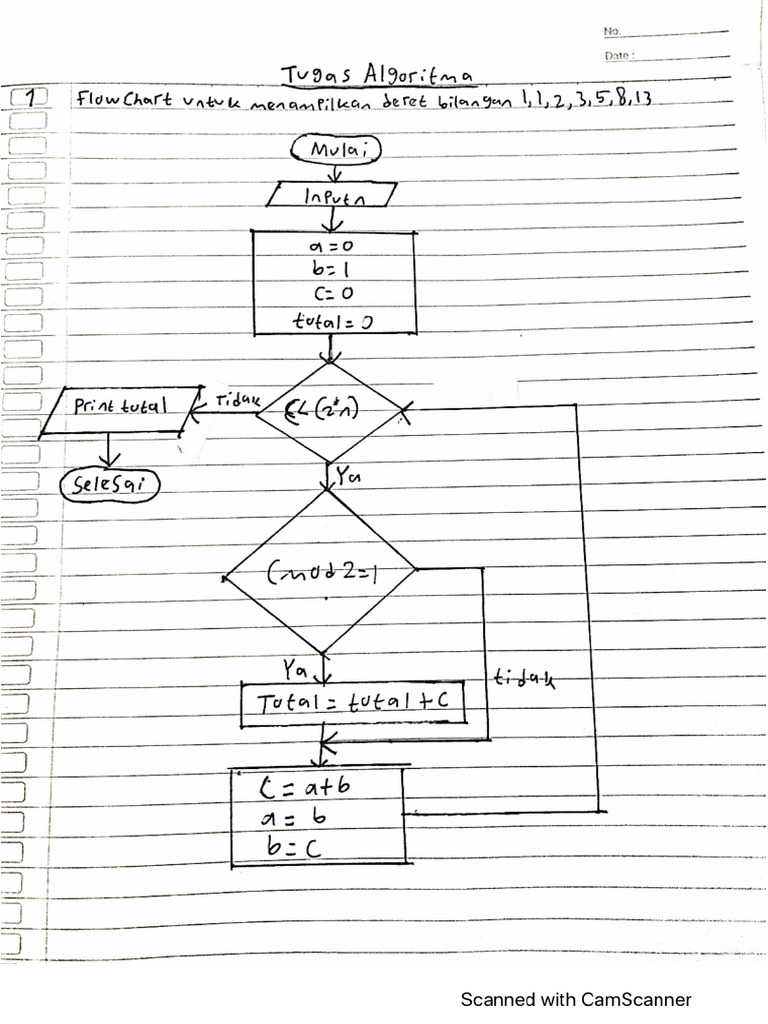 No.
Date:
Tugas Algoritma
1 Flowchart untuk menampilkan deret bilangan 1,1,2,3,5,8,13
Mulai
Input n
a=0
b=1
c=0
total=0
C<(2*n)
Tidak
Print total
Selesai
Ya
C mod 2=1
Ya
tidak
Total = total + C
C = a+b
a = b
b = C
Scanned with CamScanner